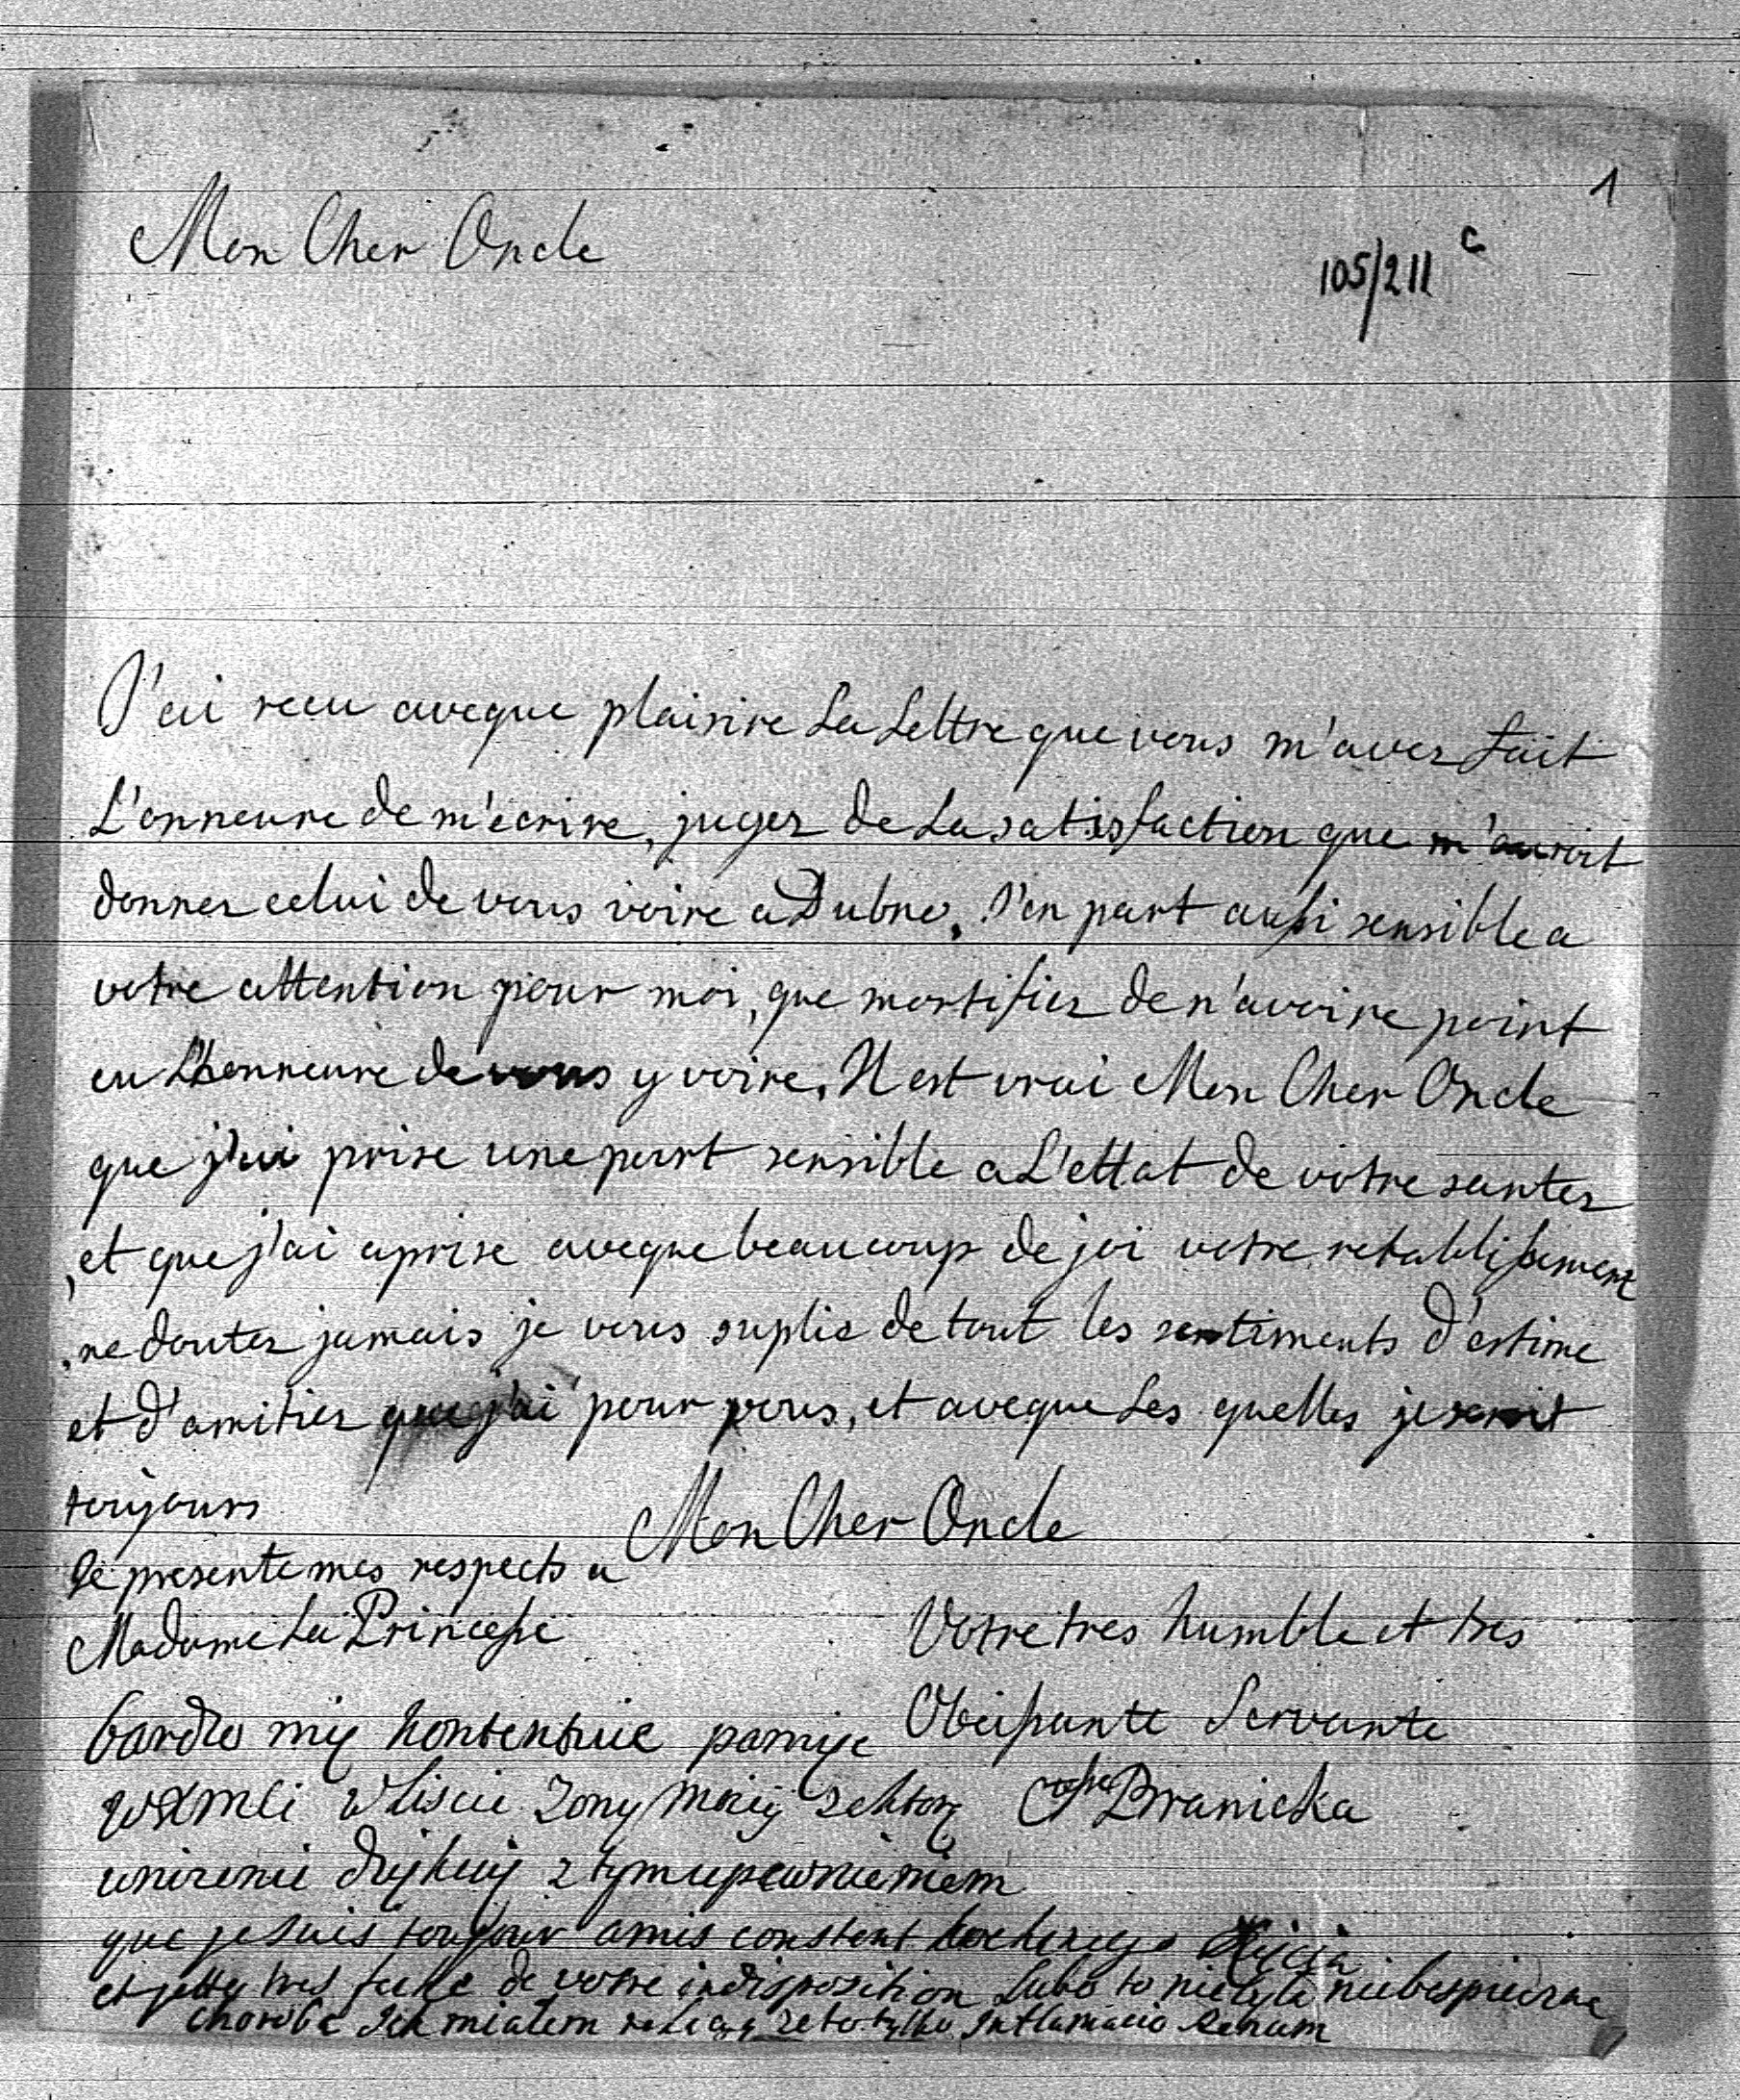 1
Mon Cher Oncle
105/211 c
J'ai recu aveque plaisire La Lettre que vous m'avez fait
L'onneure de m'ecrire, jugez de La satisfaction que m'auroit
donner celui de vous voire a Dubno, J'en part aussi sensible a
votre attention pour moi, que mortifiez de n'avoire point
eu L'honneure de vous y voire, Il est vrai Mon Cher Oncle
que j'ai prise une part sensible a L'ettat de votre santez
, et que j'ai aprise aveque beaucoup de joi votre retablissement
, ne doutez jamais je vous suplie de tout les sentiments d'estime
et d'amitiez que j'ai pour vous, et aveque Les quelles je serait
toujours
Mon Cher Oncle
Je presente mes respects a
Madame La Princesse
Votre tres humble et tres
Obeissante Servante
Branicka
bardzo mię kontentuie pamięc
WXMCi w Liscie Zony moiey za ktorą
unizenie dziękuię z tym upewnieniem
que je suis toujour amis constent kochanego Xięcia
et tres de votre indisposition Lubo to nie była niebespieczna
choroba Jak miałem ze to tylko Inflamacio Renum